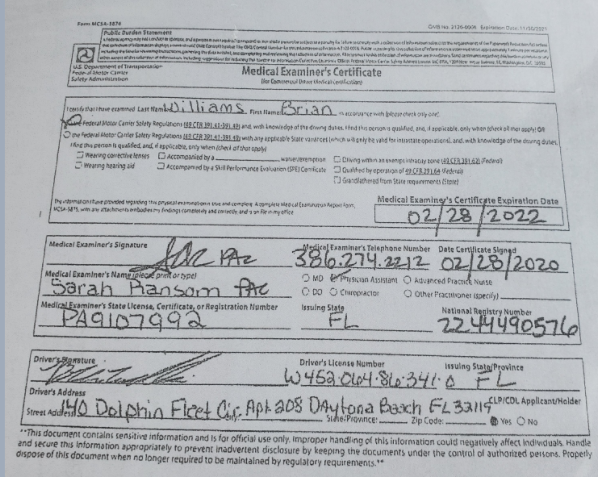 Form MCSA-5876 OMB No. 2126-0006 Expiration Date: 11/30/2021
Public Burden Statement
U.S. Department of Transportation
Federal Motor Carrier
Safety Administration
Medical Examiner's Certificate
(for Commercial Driver Medical Certification)
I certify that I have examined Last Name: Williams First Name: Brian in accordance with (please check only one):
the Federal Motor Carrier Safety Regulations (49 CFR 391.41-391.49) and, with knowledge of the driving duties, I find this person is qualified, and, if applicable, only when (check all that apply) OR
the Federal Motor Carrier Safety Regulations (49 CFR 391.41-391.49) with any applicable State variances (which will only be valid for intrastate operations), and, with knowledge of the driving duties,
I find this person is qualified, and, if applicable, only when (check all that apply)
Wearing corrective lenses Accompanied by a waiver/exemption Driving within an exempt intracity zone (49 CFR 391.62) (Federal)
Wearing hearing aid Accompanied by a Skill Performance Evaluation (SPE) Certificate Qualified by operation of 49 CFR 391.64 (Federal)
Grandfathered from State requirements (State)
The information I have provided regarding this physical examination is true and complete. A complete Medical Examination Report Form,
MCSA-5875, with any attachments embodies my findings completely and correctly, and is on file in my office.
Medical Examiner's Certificate Expiration Date
02/28/2022
Medical Examiner's Signature Medical Examiner's Telephone Number Date Certificate Signed
PAC 386.274.2212 02/28/2020
Medical Examiner's Name (please print or type) MD Physician Assistant Advanced Practice Nurse
Sarah Ransom PAC DO Chiropractor Other Practitioner (specify)
Medical Examiner's State License, Certificate, or Registration Number Issuing State National Registry Number
PA9107992 FL 2244490576
Driver's Signature Driver's License Number Issuing State/Province
W452.064.86.341.0 FL
Driver's Address CLP/CDL Applicant/Holder
Street Address: 140 Dolphin Fleet Cir. Apt 208 Daytona Beach FL 32119 State/Province: Zip Code: Yes No
**This document contains sensitive information and is for official use only. Improper handling of this information could negatively affect individuals. Handle
and secure this information appropriately to prevent inadvertent disclosure by keeping the documents under the control of authorized persons. Properly
dispose of this document when no longer required to be maintained by regulatory requirements.**